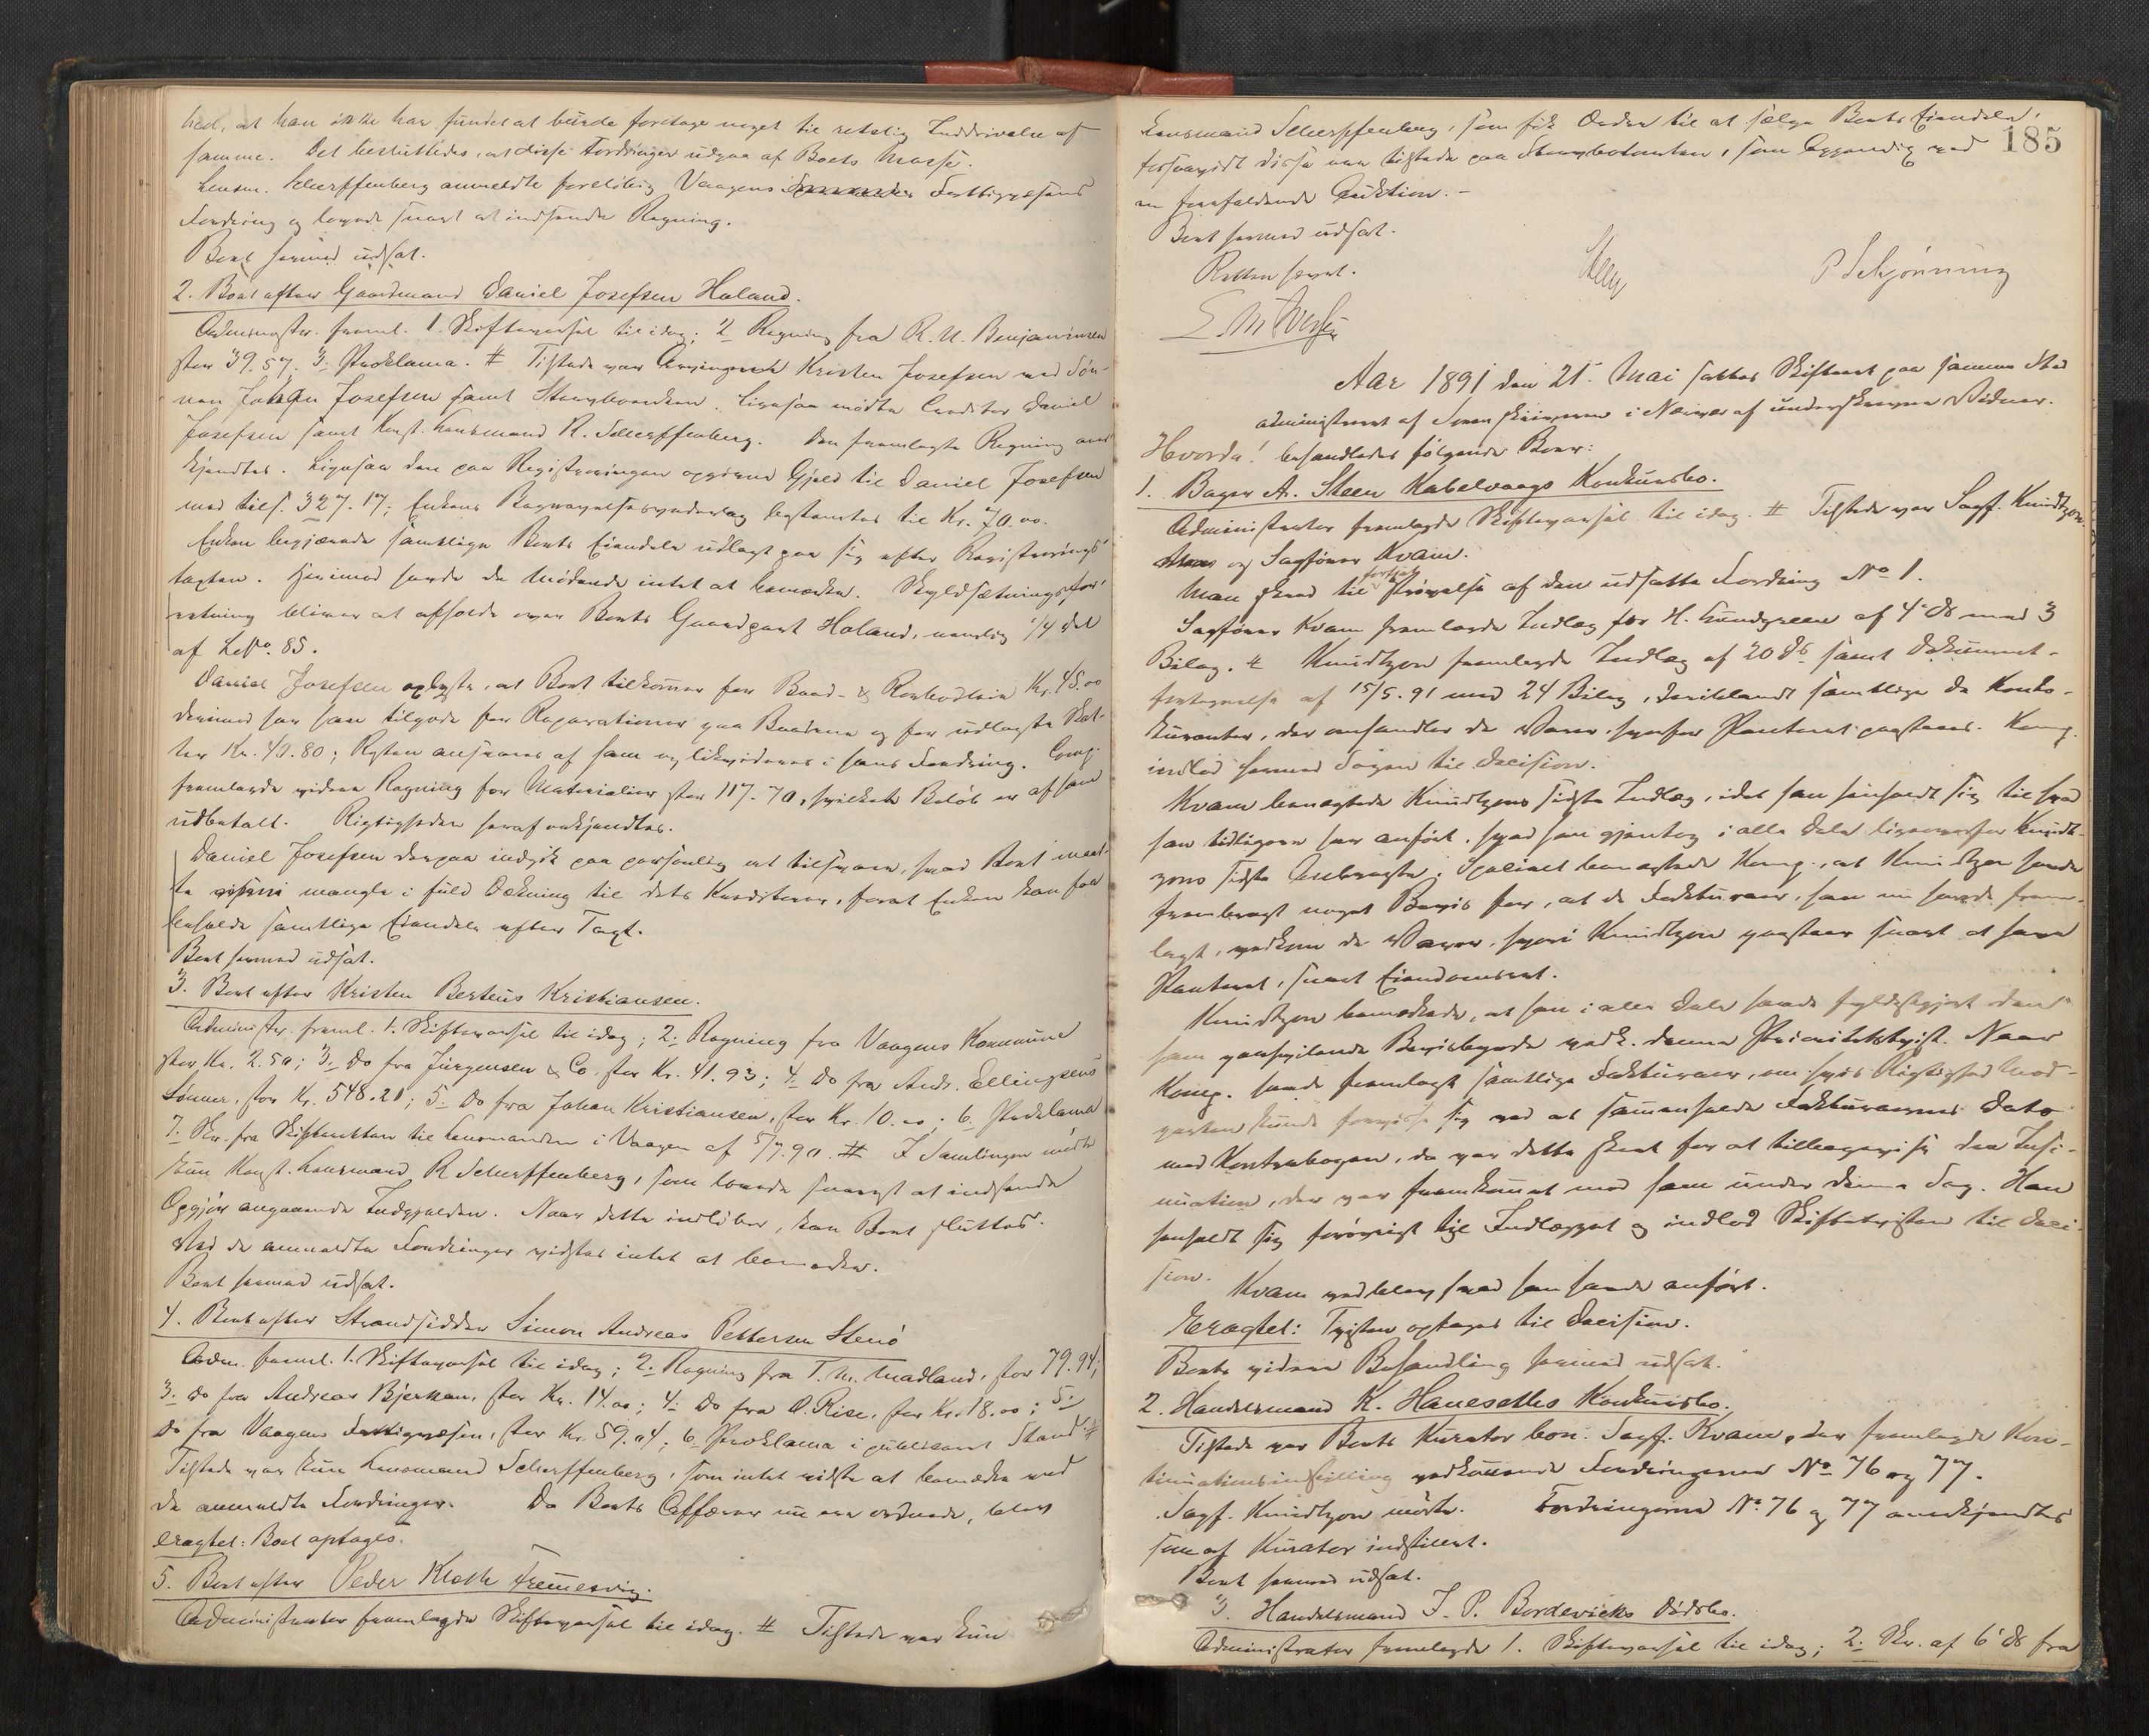 hed, at han ikke har fundet at burde foretage noget til retslig Inddrivelse af
samme. Det besluttedes, at disse Fordringer udgaa af Boets Masse.
Lensm. Scherpffenberg anmeldte foreløbig Vaagens Fattigvæsens
Fordring og lovede snart at indsende Regning.
Boet hermed udsat.
2. Boet efter Gaardmand Daniel Josefsen Holand.
Administr. freml. 1. Skiftevarsel til idag; 2 Regning fra R. U. Benjaminsen
stor 39.57. 3. Proklama. # Tilstede var Kristen Josefsen med Søn-
nen Johan Josefsen samt Stervboenken. Ligesaa mødte Creditor Daniel
Josefsen samt Konst. Lensmand R. Scherpffenberg. Den fremlagte Regning aner-
kjendtes. Ligesaa den paa Registreringen opgivne Gjæld til Daniel Josefsen
med tils. 327.17; Enkens Begravelsesvederlag bestemtes til Kr. 70.00.
Enken begjærede samtlige Boets Eiendele udlagt paa sig efter Registrerings-
taxten. Herimod havde de Mødende intet at bemærke. Skyldsætningsfor-
retning bliver at afholde over Boets Gaardpart Holand, nemlig 1/4 del
af LNo. 85.
Daniel Josefsen oplyste, at Boet tilkommer for Baad- & Rorbodleie Kr. 45.00
derimod har han tilgode for Reparationer paa Baadene og for udlagte Skat-
ter Kr. 42.80; Resten ansvares af ham og likvideres i hans Fordring. Comp.
fremlagde videre Regning for Materialier stor 117.70, hvilket Beløb er af ham
udbetalt. Rigtigheden heraf vedkjendtes.
Daniel Josefsen derpaa indgik paa personlig at tilsvare, hvad Boet maat-
te mangle i fuld Dækning til dets Kreditorer, forat Enken kan faa
beholde samtlige Eiendele efter Taxt.
Boet hermed udsat.
3. Boet efter Kristen Berteus Kristiansen.
Administr. freml. 1. Skiftevarsel til idag; 2. Regning fra Vaagens Kommune
stor Kr. 2.50; 3. Do fra Jürgensen & Co. stor Kr. 41.93; 4. Do fra Andr. Ellingsens
Sønner, stor Kr. 548.21; 5. Do fra Johan Kristiansen, stor Kr. 10.00; 6. Proklama
7. Skr. fra Skifteretten til Lensmanden i Vaagen af 5/7.90. # I Samlingen mødte
kun Konst. Lensmand R Scherpffenberg, som lovede snarest at indsende
Opgjør angaaende Indgjælden. Naar dette indløber, kan Boet sluttes.
Ved de anmeldte Fordringer vidstes intet at bemærke.
Boet hermed udsat.
4. Boet efter Strandsidder Simon Andreas Pettersen Stenø
Adm. freml. 1. Skiftevarsel til idag; 2. Regning fra T. M. Madland, stor 79.94;
3. Do fra Andreas Bjerkan, stor Kr. 14.00; 4. Do fra O. Rise, stor Kr. 18.00; 5.
Do fra Vaagens Fattigvæsen, stor Kr. 59.04; 6. Proklama i publiceret Stand. #
Tilstede var kun Lensmand Scherpffenberg, som intet vidste at bemærke ved
de anmeldte Fordringer. Da Boets Affærer nu var ordnede, blev
eragtet: Boet optages.
5. Boet efter Peder Kloth
Administrator fremlagde Skiftevarsel til idag. # Tilstede var kun
185
Lensmand Scherpffenberg, som fik Ordre til at sælge Boets Eiendele,
forsaavidt disse var tilstede paa Stervbotomten, som leggendig ved
en forefaldende Auktion.-
Boet hermed udsat.
Retten hævet.
Steen
P Schjønning
Aar 1891 den 21. Mai sattes Skifteret paa samme Sted
administreret af Sorenskriveren i Nærvær af underskrevne Vidner.
Hvorda! behandledes følgende Boer:
1. Bager A. Steen Kabelvaags Konkursbo.
Administrator fremlagde Skiftevarsel til idag. # Tilstede var Sagf. Knudtzon
og Sagfører Kvam.
Man skred til fortsat Prøvelse af den udsatte Fordring No 1.
Sagfører Kvam fremlagde Indlæg for H. Lundgreen af 4. ds med 3
Bilag. # Knudtzon fremlagde Indlæg af 20 ds samt Dokument-
fortegnelse af 15/5.91 med 24 Bilag, deriblandt samtlige de Konto-
kuranter, der omhandler de Varer, hvorfor Panteret paastaaes. Komp.
indlod hermed Sagen til Decision.
Kvam benegtede Knudtzons sidste Indlæg, idet han henholdt sig til hvad
han tidligere har anført, hvad han gjentog i alle Dele ligeoverfor Knudt-
zons sidste Anbragte. Specielt benegtede Komp., at Knudtzon havde
frembragt noget Bevis for, at de Fakturaer, han nu havde frem-
lagt, vedkom de Varer, hvori Knudtzon paastaar snart at have
Panteret, snart Eiendomsret.
Knudtzon bemærkede, at han i alle Dele havde fyldestgjort den
ham paahvilende Bevisbyrde vedk. denne Prioritetstvist. Naar
Komp. havde fremlagt samtlige Fakturaer, om hvis Rigtighed Mod-
parten kunde forvisse sig ved at sammenholde Fakturaernes Dato
med Kontrabogen, da var dette skeet for at tilbagevise den Insi-
nuation, der var fremkommet mod ham under denne Sag. Han
henholdt sig forøvrigt til Indlægget og indlod Skiftetvisten til Deci-
sion.
Kvam vedblev hvad han havde anført.
Eragtet: Tvisten optages til Decision.
Boets videre Behandling hermed udsat.
2. Handelsmand K. Haneseths Konkursbo.
Tilstede var Boets Kurator bon. Sagf. Kvam, der fremlagde Kon-
tinuationsindstilling vedkommende Fordringerne No 76 og 77.
Sagf. Knudtzon mødte. Fordringerne No. 76 og 77 anerkjendtes
som af Kurator indstillet.
Boet hermed udsat.
3. Handelsmand J. P. Bordevicks Dødsbo.
Administrator fremlagde 1. Skiftevarsel til idag; 2. Skr. af 6 ds fra